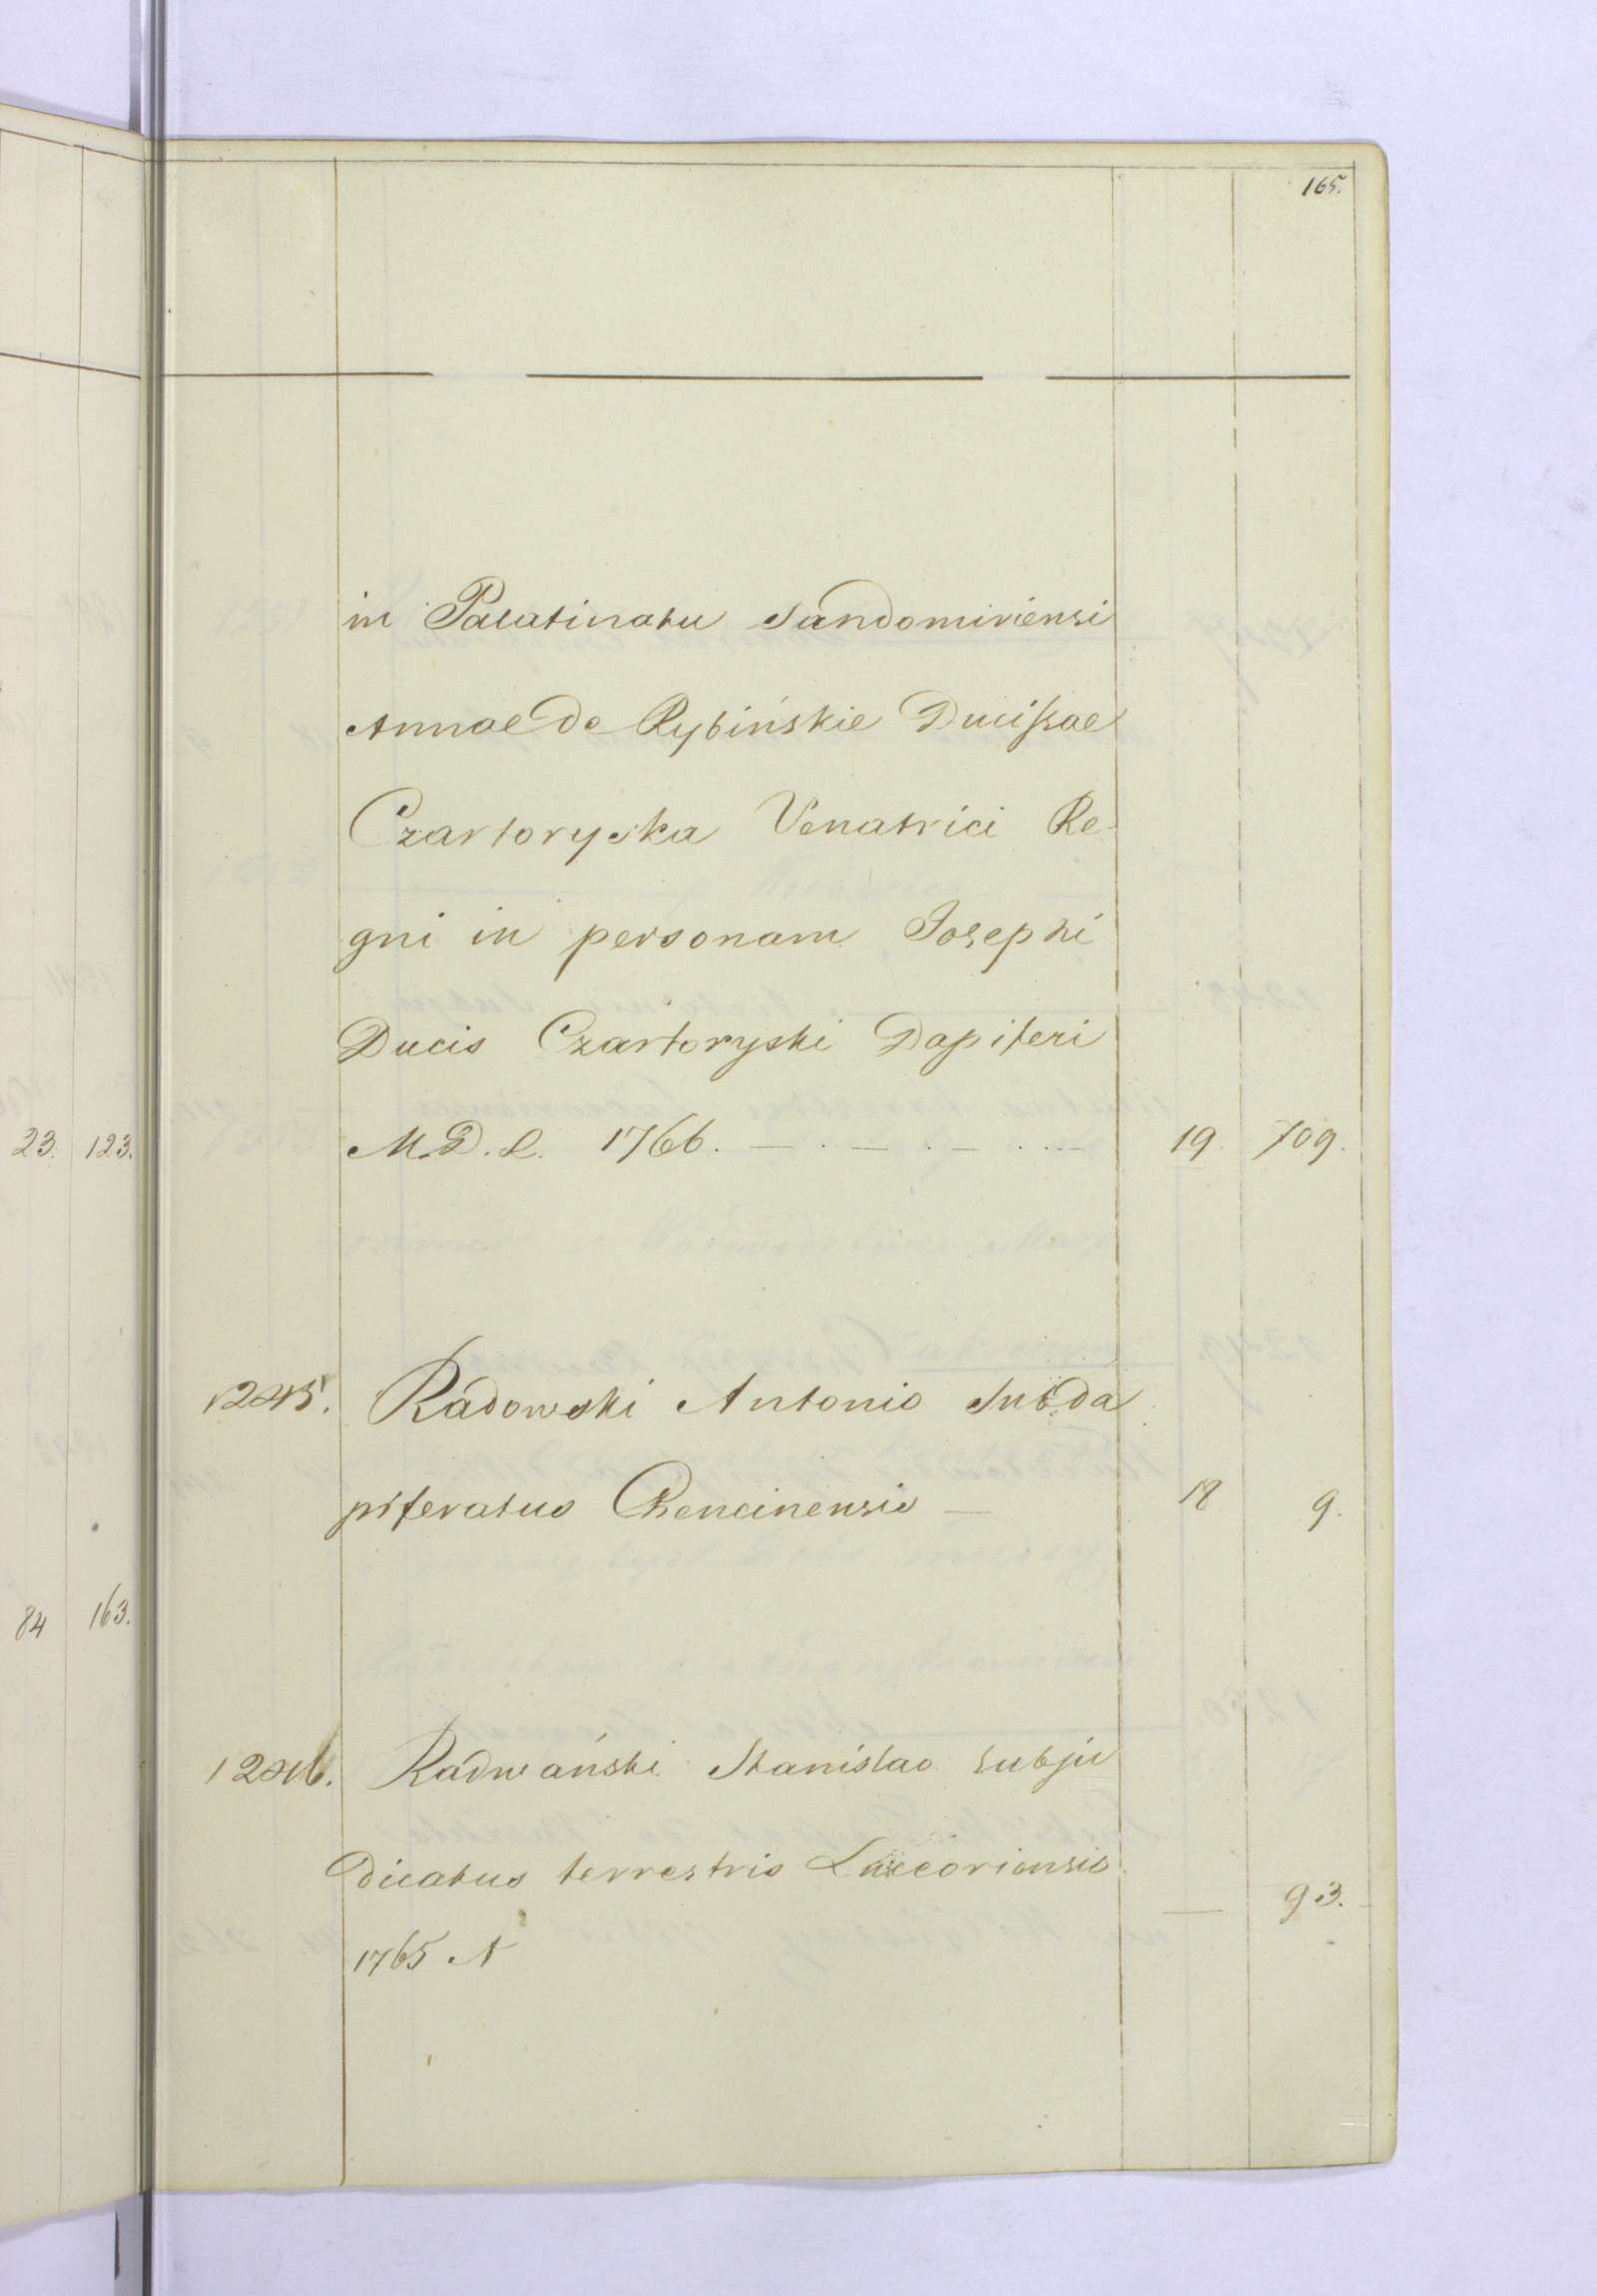 165.
in Palatinatu Sandomiriensi
Annae de Rybińskie Ducissae
Czartoryska Venatrici Re-
gni in personam Josephi
Ducis Czartoryski Dapiferi
M. D. L. 1766. 19. 709.
23. 123.
1245. Radowski Antonio Subda
piferatus Chencinensis — 18 9.
84 163.
1246. Radwański Stanislao Subju
dicatus terrestris Luceoriensis
— 93.
1765 N